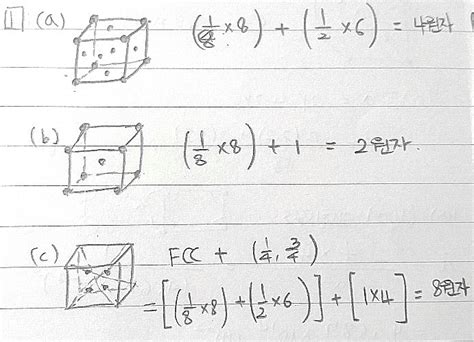 1 (a) (1/8 × 8) + (1/2 × 6) = 4원자
(b) (1/8 × 8) + 1 = 2원자.
(c) FCC + (1/4, 3/4)
= [(1/8 × 8) + (1/2 × 6)] + [1 × 4] = 8원자